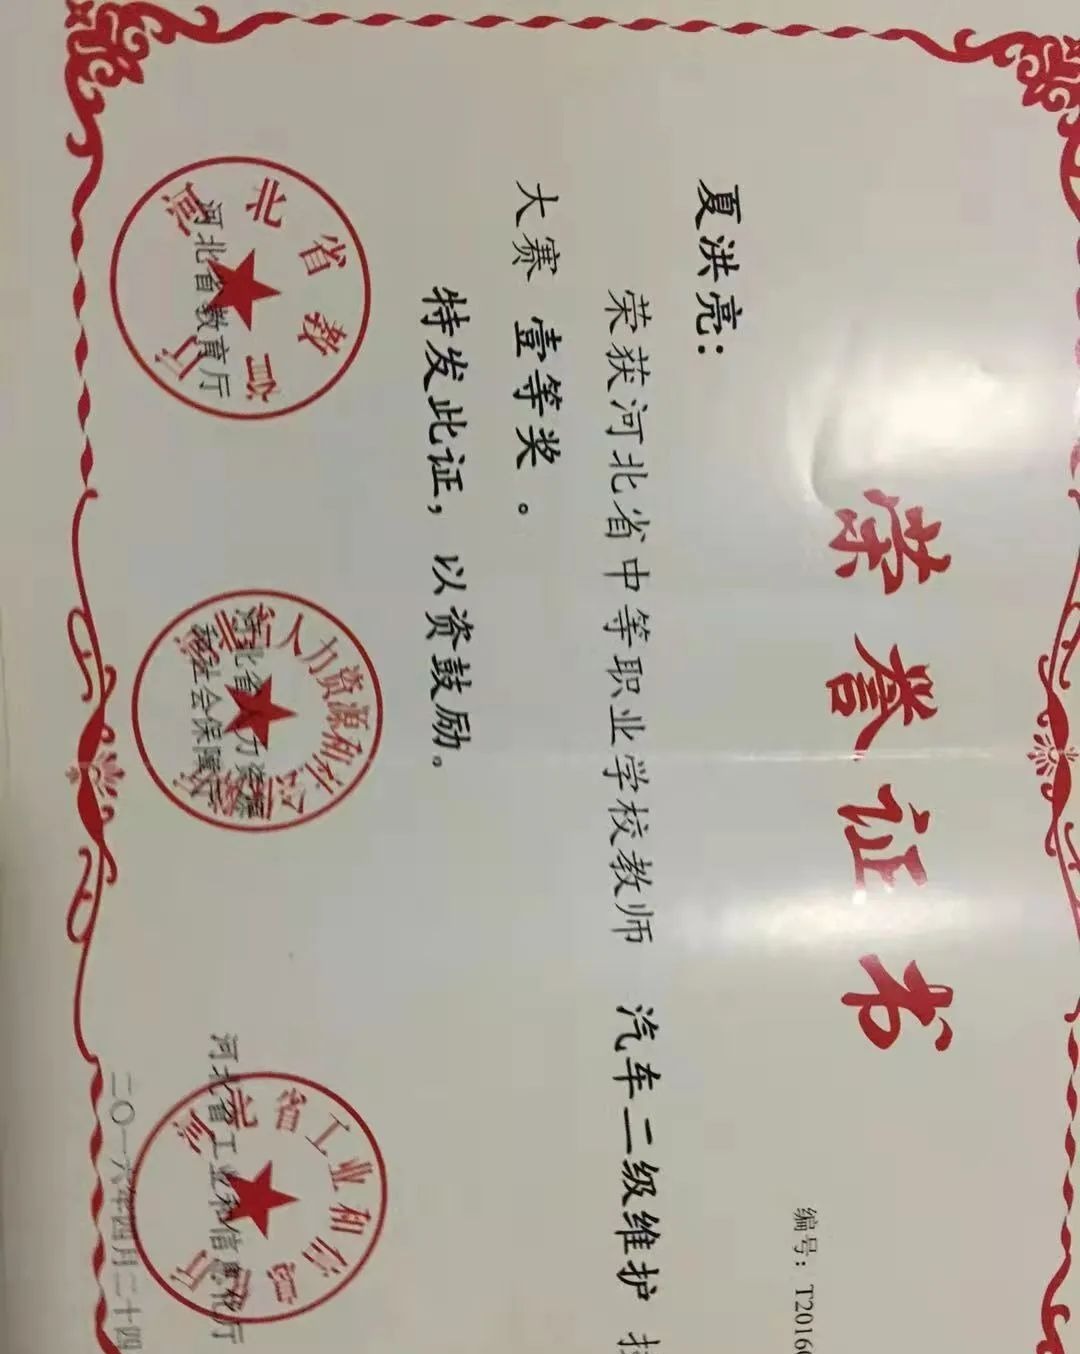 荣誉证书
编号：T2016
夏洪亮：
荣获河北省中等职业学校教师 汽车二级维护
大赛 壹等奖 。
特发此证，以资鼓励。
河北省教育厅
河北省人力资源
和社会保障厅
河北省工业和信息化厅
二〇一六年四月二十四